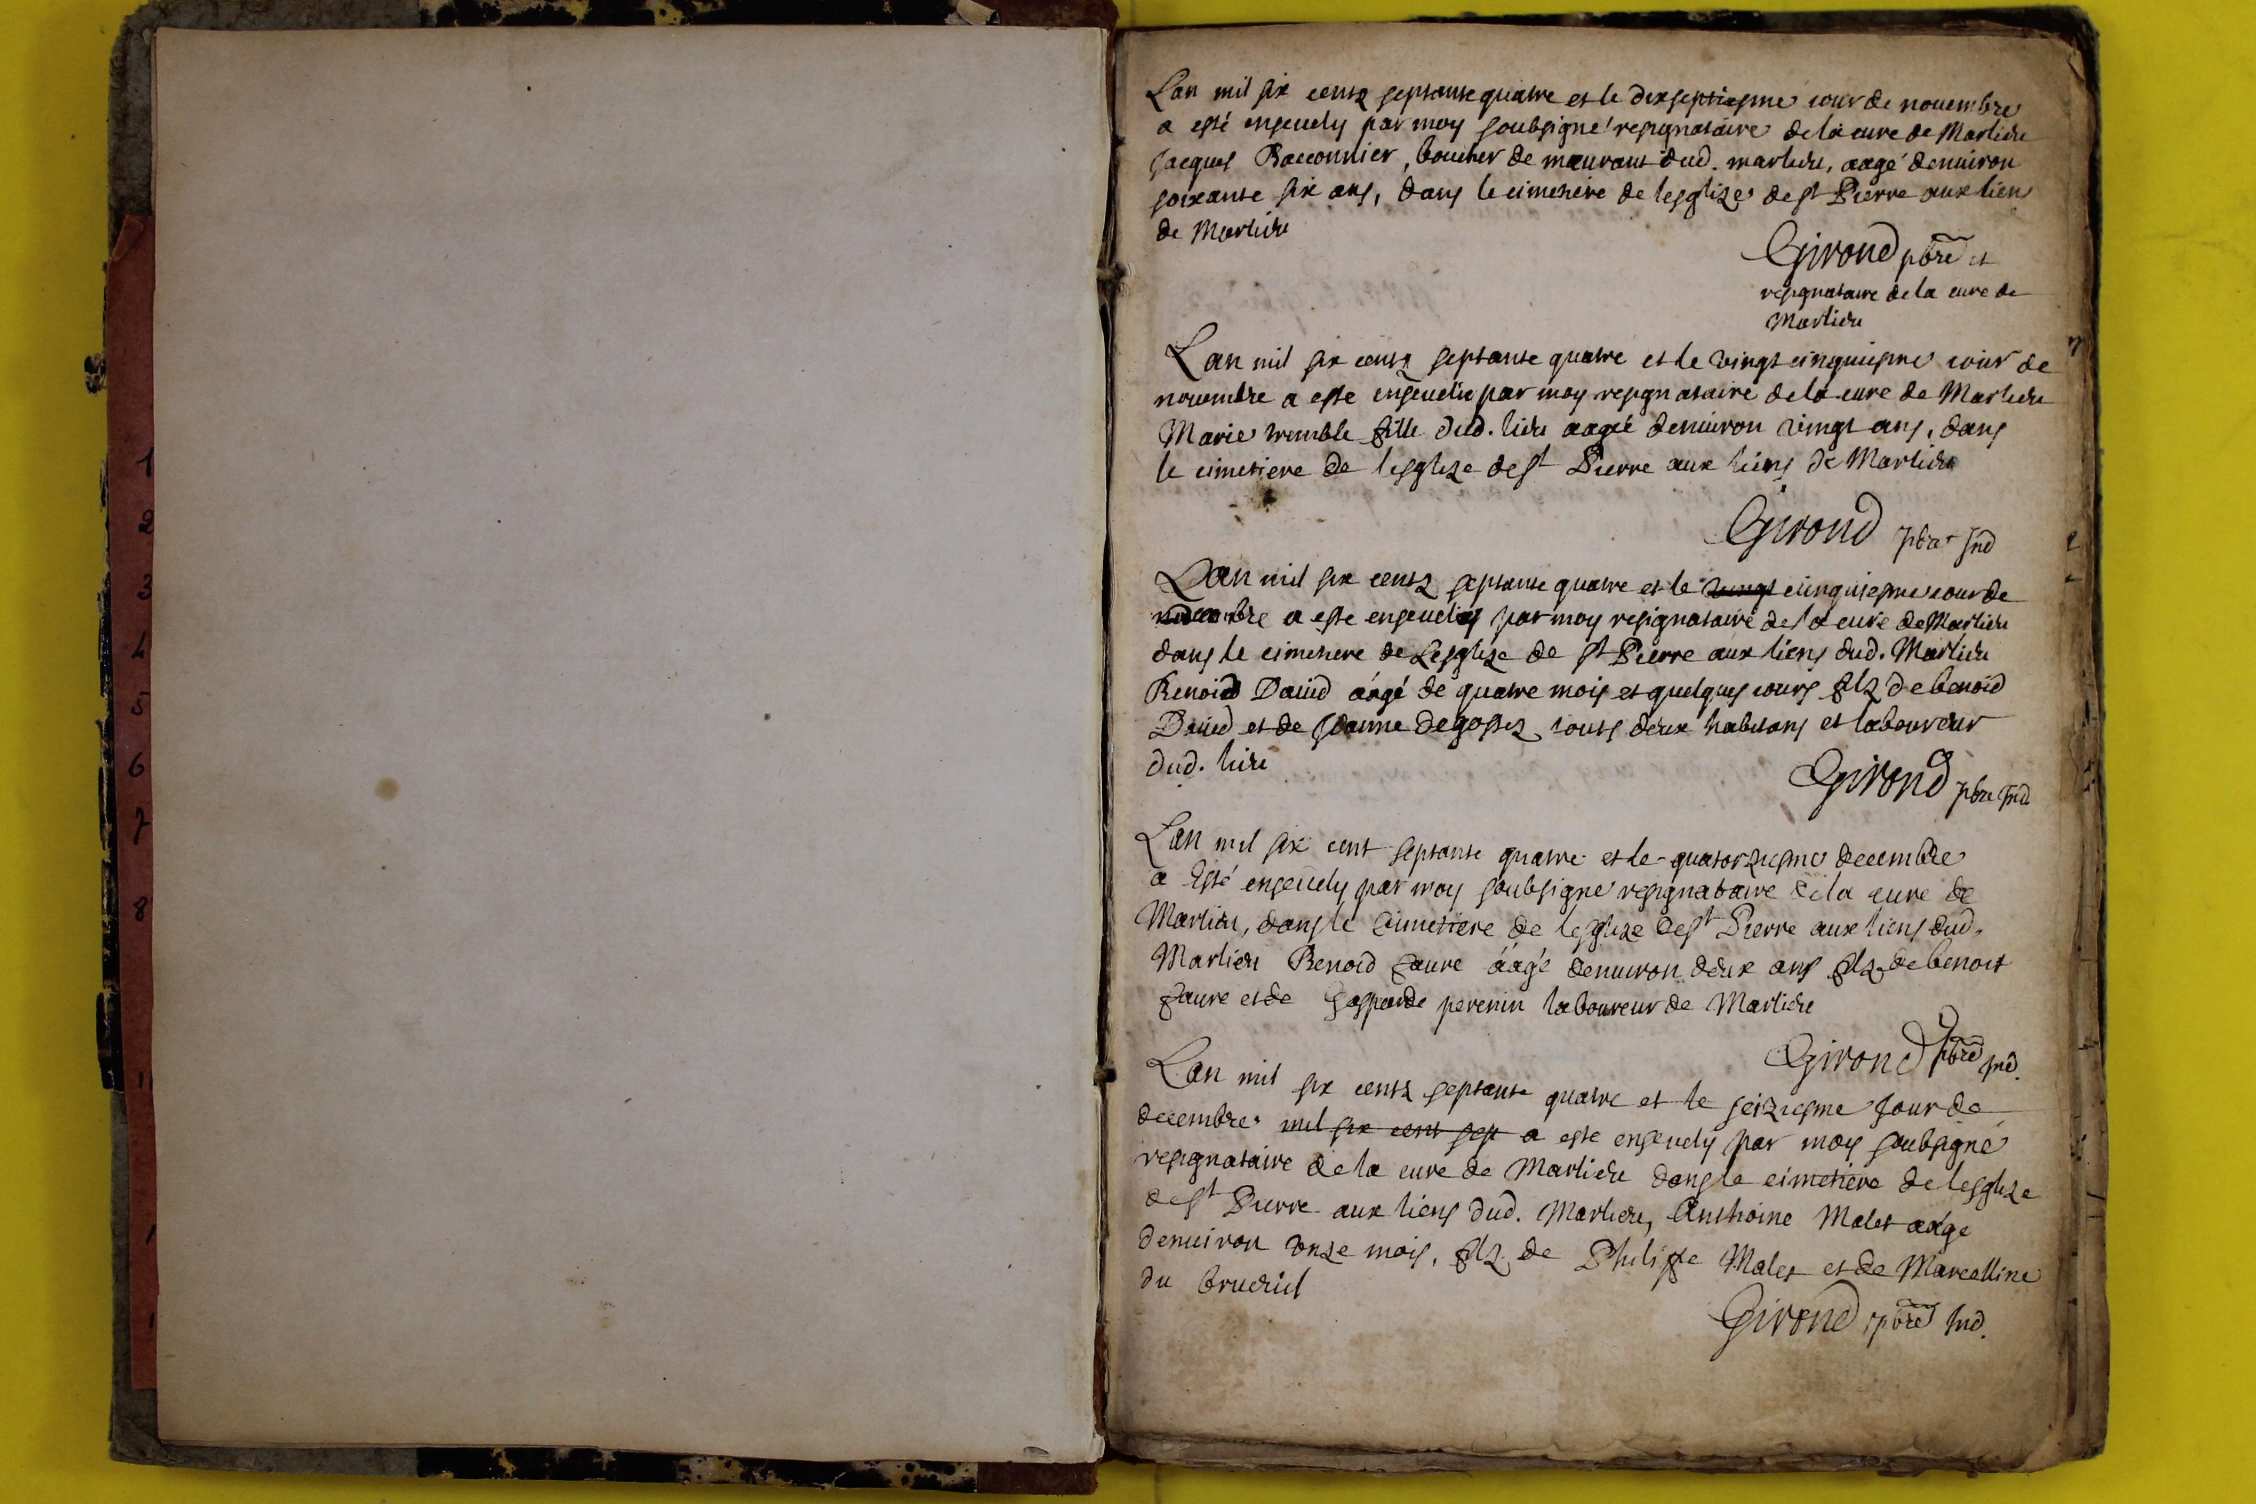 Lan mil six centz septante quatre et le dixseptiesme iour de nouembre
a esté enseuely par moy soubsigné resignataire de la cure de Marlieu
Jacques Bacconnier, boucher de mourant dud. marlieu, aagé denuiron
soixante six ans, dans le cimetiere de lesglize de st Pierre aux liens
de Marlieu
Girond pbre et
resignataire de la cure de
Marlieu
Lan mil six centz septante quatre et le vingt cinquiesme iour de
nouembre a este enseuelie par moy resignataire de la cure de Marlieu
Marie tremble fille dud. lieu aagée denuiron vingt ans, dans
le cimetiere de lesglize de st Pierre aux liens de Marlieu
Girond pbre
Lan mil six centz septante quatre et le vingt cinquiesme iour de
a este enseuely par moy resignataire de la cure de Marlieu
dans le cimetiere de Lesglize de st Pierre aux liens dud. Marlieu
Benoid Dauid aagé de quatre mois et quelques iours filz de benoid
Dauid et de Jeanne touts deux habitans et laboureur
dud. lieu
Girond pbre
Lan mil six cent septante quatre et le quatorziesme decembre
a Esté enseuely par moy soubsigné resignataire de la cure de
Marlieu, dans le Cimetiere de lesglize de st Pierre aux liens dud.
Marlieu Benoid faure aagé denuiron deux ans filz de benoit
faure et de Gasparde perenin laboureur de Marlieu
Girond pbre
Lan mil six centz septante quatre et le seiziesme Jour de
decembre mil six cent sept a este enseuely par moy soubsigné
resignataire de la cure de Marlieu dans le cimetiere de lesglize
de st Pierre aux liens dud. Marlieu, Anthoine Malet aagé
denuiron onze mois, filz de Philippe Malet et de Marcelline
du
Girond pbre
1
2
3
4
5
6
7
8